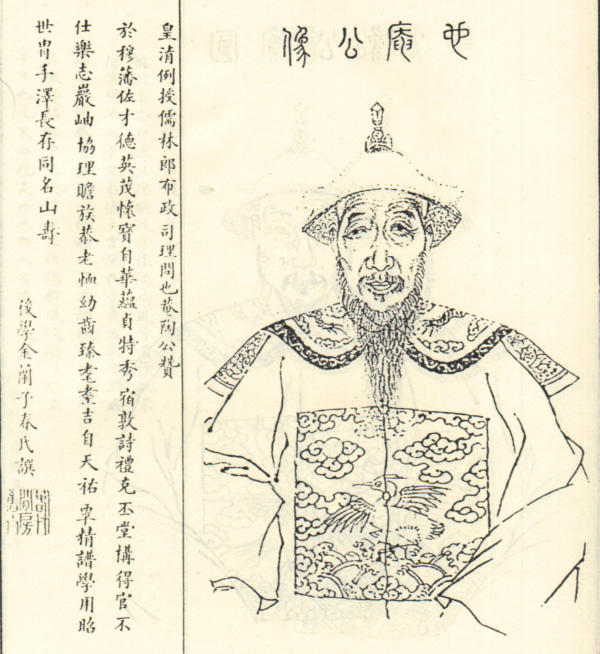 也庵公像
皇清例授儒林郎布政司理問也菴陶公贊
於穆藩佐才德英茂懷寶自華蘊貞特秀宿敦詩禮克丕堂構得官不
仕樂志巖岫協理贍族恭老恤幼齒臻耄耋吉自天祐覃精譜學用昭
世胄手澤長存同名山壽
後學金蘭子春氏譔